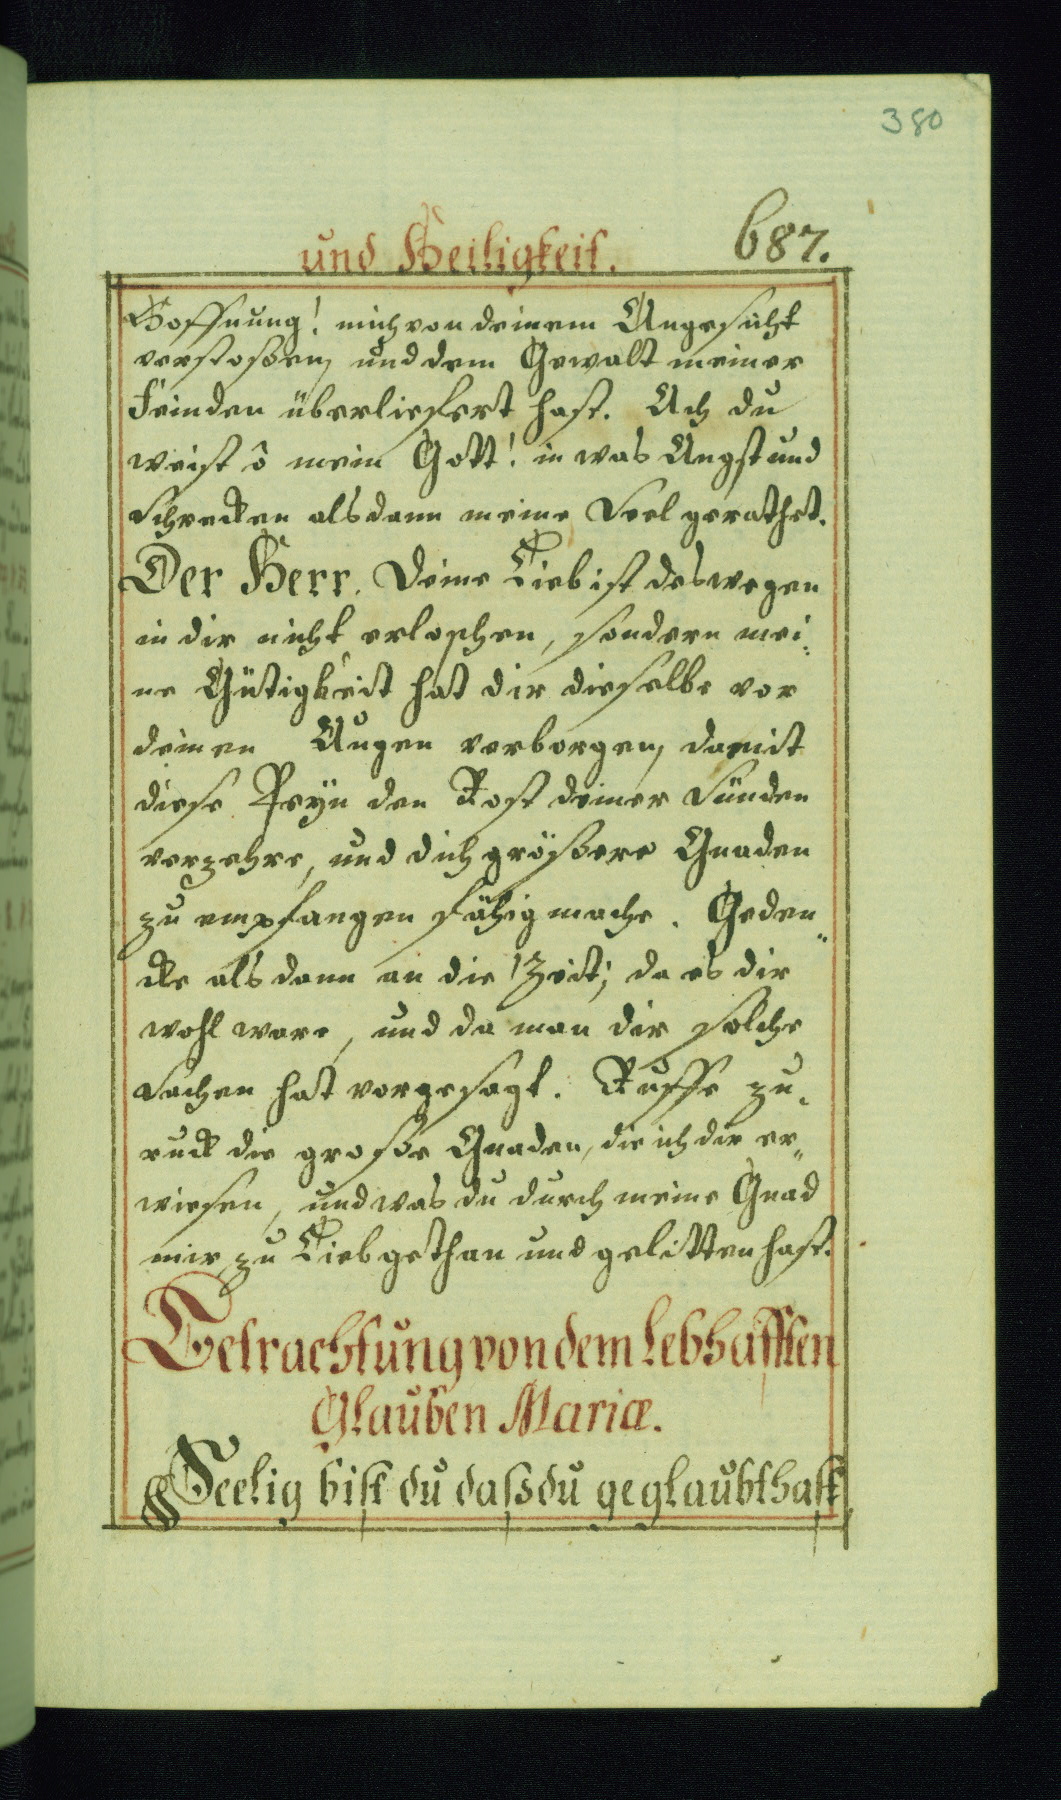 380
und Heiligkeit. 687.
Hoffnung! mich von deinem Angesicht
verstoßen, und dem Gewalt meiner
Feinden überliefert hast. Ach du
weist ô mein Gott! in was Angst und
Schrecken alsdann meine Seel gerathet.
Der Herr. Deine Lieb ist deswegen
in dir nicht erloschen, sondern mei¬
ne Gütigkeit hat dir dieselbe vor
deinen Augen verborgen, damit
diese Peyn den Rost deiner Sünden
verzehre, und dich größere Gnaden
zu empfangen fähig mache. Geden¬
cke alsdann an die Zeit, da es dir
wohl ware, und da man dir solche
Sachen hat vorgesagt. Ruffe zu¬
ruck die große Gnaden, die ich dir er¬
wiesen, und was du durch meine Gnad
mir zu Lieb gethan und gelitten hast.
Betrachtung von dem lebhafften
Glauben Mariæ.
Seelig bist du daß du geglaubt hast